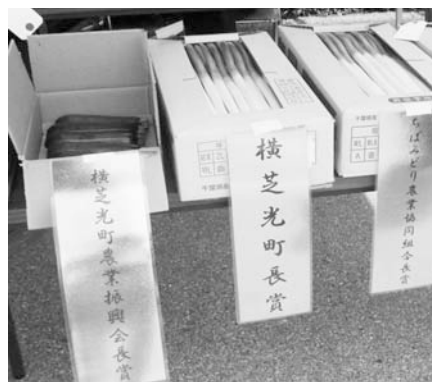 横芝光町農業振興会長賞
横芝光町長賞
ちばみどり農業協同組合長賞